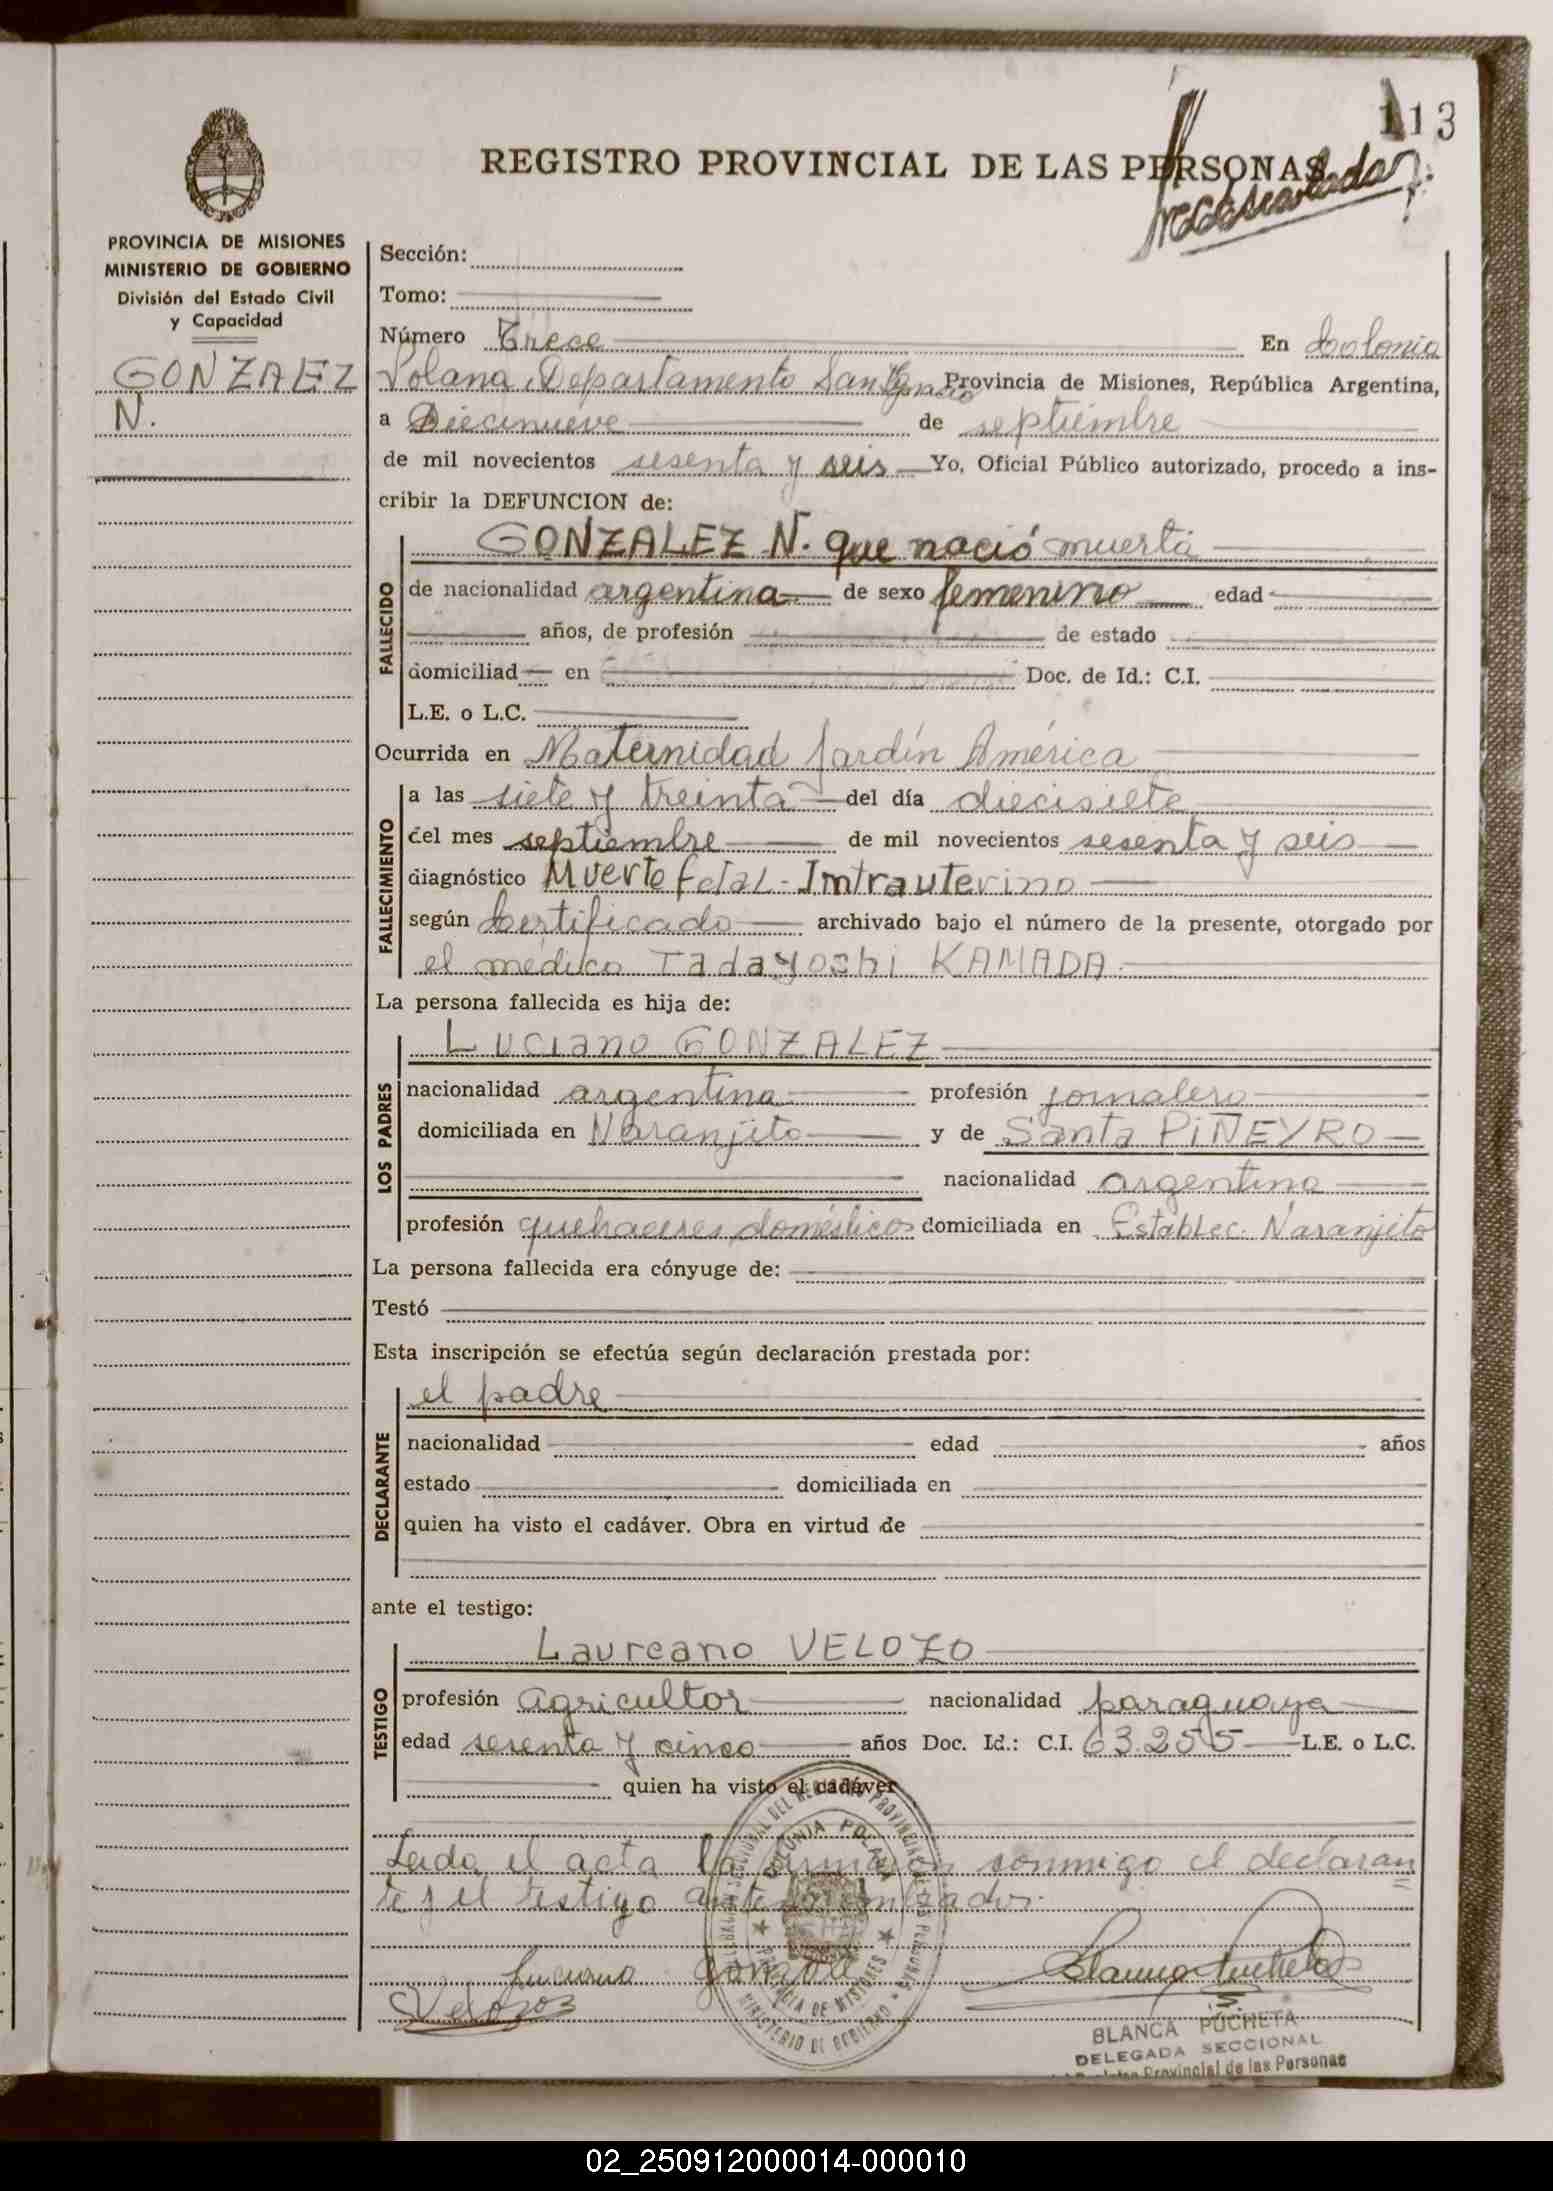 113
REGISTRO PROVINCIAL DE LAS PERSONAS
PROVINCIA DE MISIONES
MINISTERIO DE GOBIERNO
División del Estado Civil
y Capacidad
GONZALEZ
N.
Sección:
Tomo:
Número Trece En Colonia
Polana, Departamento San Ignacio Provincia de Misiones, República Argentina,
a Diecinueve de septiembre
de mil novecientos sesenta y seis Yo, Oficial Público autorizado, procedo a ins-
cribir la DEFUNCION de:
FALLECIDO
GONZALEZ N. que nació muerta
de nacionalidad argentina de sexo femenino edad
años, de profesión de estado
domiciliad en Doc. de Id.: C.I.
L.E. o L.C.
Ocurrida en Maternidad Jardín América
FALLECIMIENTO
a las siete y treinta del día diecisiete
del mes septiembre de mil novecientos sesenta y seis
diagnóstico Muerte fetal - Imtrauterino
según Certificado archivado bajo el número de la presente, otorgado por
el médico Tadayoshi KAMADA.
La persona fallecida es hija de:
LOS PADRES
Luciano GONZALEZ
nacionalidad argentina profesión jornalero
domiciliada en Naranjito y de Santa PIÑEYRO
nacionalidad argentina
profesión quehaceres domésticos domiciliada en Establec. Naranjito
La persona fallecida era cónyuge de:
Testó
Esta inscripción se efectúa según declaración prestada por:
DECLARANTE
el padre
nacionalidad edad años
estado domiciliada en
quien ha visto el cadáver. Obra en virtud de
ante el testigo:
TESTIGO
Laureano VELOZO
profesión Agricultor nacionalidad paraguaya
edad sesenta y cinco años Doc. Id.: C.I. 63.255 L.E. o L.C.
quien ha visto el cadáver
Leida el acta la firmaron conmigo el declaran
te y el testigo ante nombrados.
COLONIA POLANA
PROVINCIA DE MISIONES
MINISTERIO DE GOBIERNO
Luciano Gonzale
Blanca Pucheta
Velozo
BLANCA PUCHETA
DELEGADA SECCIONAL
Provincial de las Personas
02_250912000014-000010